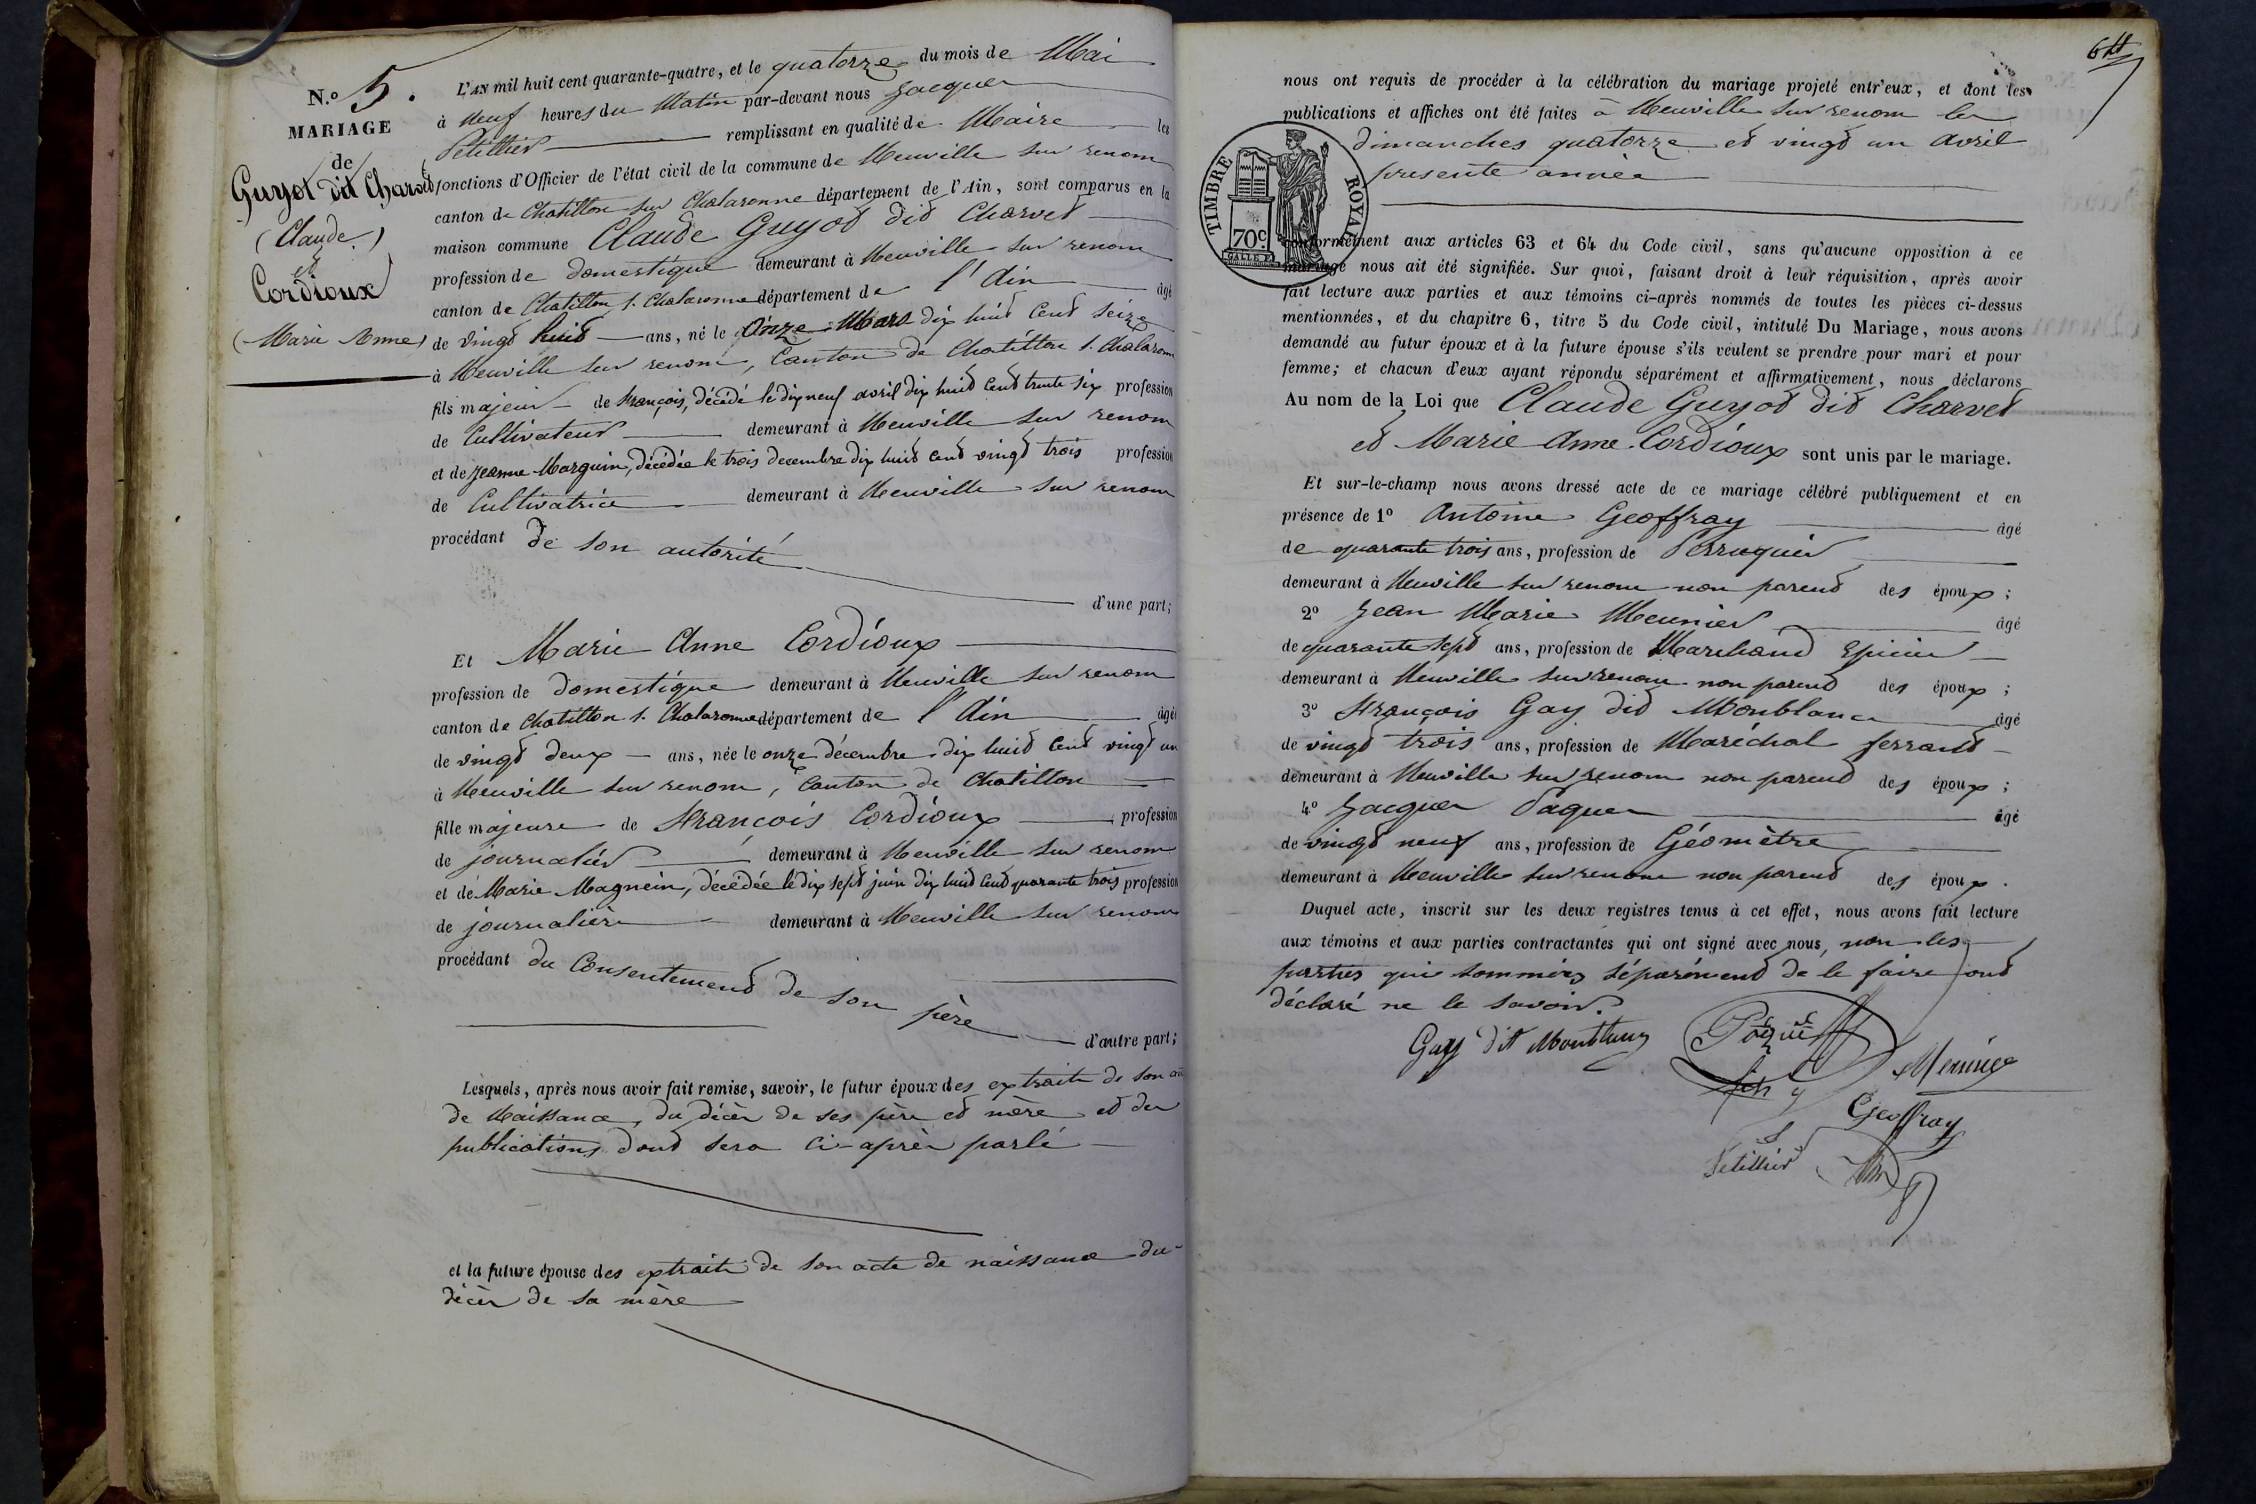 N.º 5.
MARIAGE
de
Guyot dit Charvet
(Claude)
et
Cordioux
(Marie Anne)
L'AN mil huit cent quarante-quatre, et le quatorze du mois de Mai
à neuf heures du Matin par-devant nous Jacques
Petillier remplissant en qualité de Maire les
fonctions d'Officier de l'état civil de la commune de Neuville sur renom
canton de Chatillon sur Chalaronne département de l'Ain, sont comparus en la
maison commune Claude Guyot dit Charvet
profession de domestique demeurant à Neuville sur renom
canton de Chatillon s. Chalaronne département de l'Ain âgé
de vingt huit ans, né le Onze Mars dix huit Cent seize
à Neuville sur renom, Canton de Chatillon s. Chalaronne
fils majeur de François, décédé le dix neuf avril dix huit Cent trente six profession
de Cultivateur demeurant à Neuville sur renom
et de Jeanne Marguin, décédée le trois decembre dix huit cent vingt trois profession
de Cultivatrice demeurant à Neuville sur renom
procédant de son autorité
d'une part;
Et Marie Anne Cordioux
profession de domestique demeurant à Neuville sur renom
canton de Chatillon s. Chalaronne département de l'Ain âgée
de vingt deux ans, née le onze décembre dix huit Cent vingt un
à Neuville sur renom, Canton de Chatillon
fille majeure de François Cordioux profession
de journalier demeurant à Neuville sur renom
et de Marie Magnein, décédée le dix sept juin dix huit Cent quarante trois profession
de journalière demeurant à Neuville sur renom
procédant du Consentement de son père
d'autre part;
Lesquels, après nous avoir fait remise, savoir, le futur époux des extraits de son acte
de Naissance, du décès de ses père et mère et des
publications dont sera Ci-après parlé
et la future épouse des extraits de son acte de naissance du
décès de sa mère
64
nous ont requis de procéder à la célébration du mariage projeté entr'eux, et dont les
publications et affiches ont été faites à Neuville sur renom les
dimanches quatorze et vingt un avril
presente année
TIMBRE ROYAL
70c.
conformément aux articles 63 et 64 du Code civil, sans qu'aucune opposition à ce
mariage nous ait été signifiée. Sur quoi, faisant droit à leur réquisition, après avoir
fait lecture aux parties et aux témoins ci-après nommés de toutes les pièces ci-dessus
mentionnées, et du chapitre 6, titre 5 du Code civil, intitulé Du Mariage, nous avons
demandé au futur époux et à la future épouse s'ils veulent se prendre pour mari et pour
femme; et chacun d'eux ayant répondu séparément et affirmativement, nous déclarons
Au nom de la Loi que Claude Guyot dit Charvet
et Marie Anne Cordioux sont unis par le mariage.
Et sur-le-champ nous avons dressé acte de ce mariage célébré publiquement et en
présence de 1º Antoine Geoffray âgé
de quarante trois ans, profession de Perruquier
demeurant à Neuville sur renom non parent des époux;
2º Jean Marie Meunier âgé
de quarante sept ans, profession de Marchand Epicier
demeurant à Neuville sur renom non parent des époux;
3º François Gay dit Monblanc âgé
de vingt trois ans, profession de Maréchal ferrant
demeurant à Neuville sur renom non parent des époux;
4º Jacques Paquer âgé
de vingt neuf ans, profession de Géomètre
demeurant à Neuville sur renom non parent des époux.
Duquel acte, inscrit sur les deux registres tenus à cet effet, nous avons fait lecture
aux témoins et aux parties contractantes qui ont signé avec nous, non les
parties qui sommées séparément de le faire ont
déclaré ne le savoir.
Gay dit Montblanc
Meunier
Geoffray
Petillier